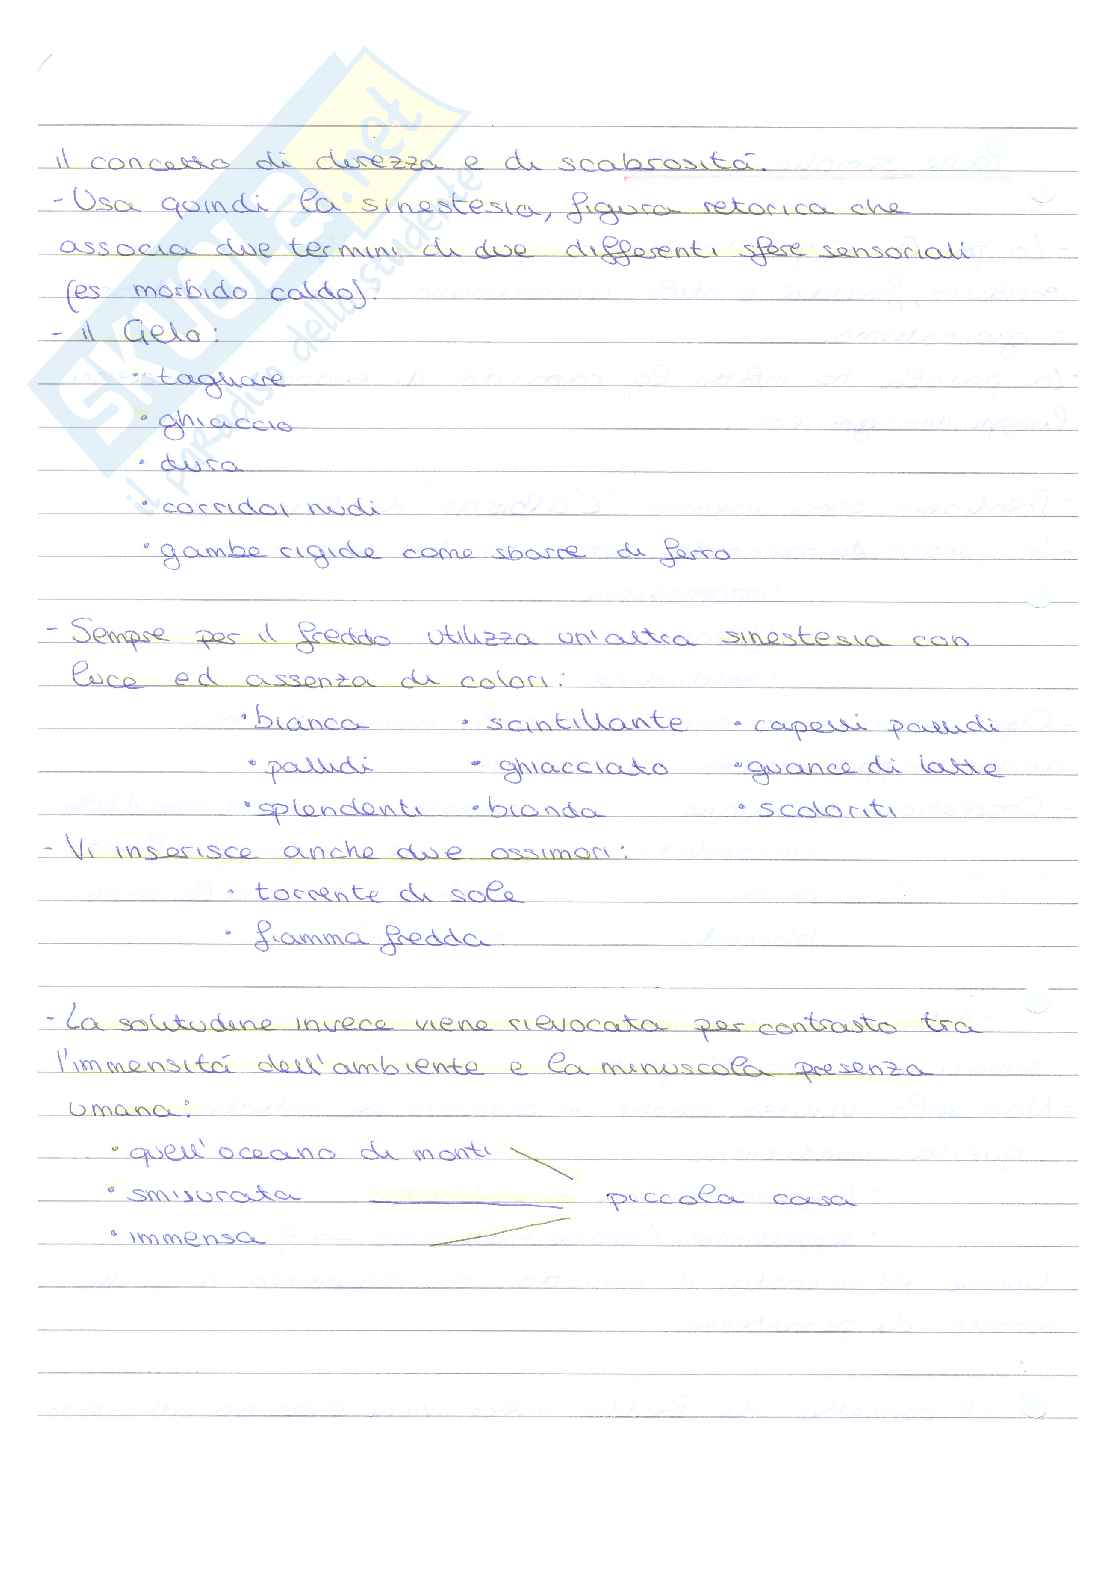 il concetto di durezza e di scabrosità.
- Usa quindi la sinestesia, figura retorica che
associa due termini di due differenti sfere sensoriali
(es morbido caldo).
- il Gelo:
• tagliare
• ghiaccio
• dura
• corridoi nudi
• gambe rigide come sbarre di ferro
- Sempre per il freddo utilizza un'altra sinestesia con
luce ed assenza di colori:
• bianca • scintillante • capelli pallidi
• pallidi • ghiacciato • guance di latte
• splendenti • bionda • scoloriti
- Vi inserisce anche due ossimori:
• torrente di sole
• fiamma fredda
- La solitudine invece viene rievocata per contrasto tra
l'immensità dell'ambiente e la minuscola presenza
umana:
• quell'oceano di monti
• smisurata piccola casa
• immensa
SKUOLA.net
il paradiso dello studente